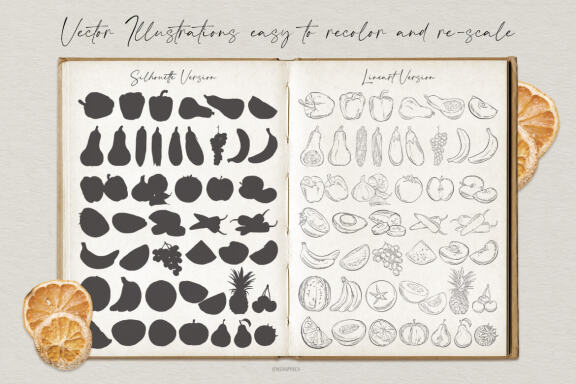 Vector Illustrations easy to recolor and re-scale
Silhouette Version
Lineart Version